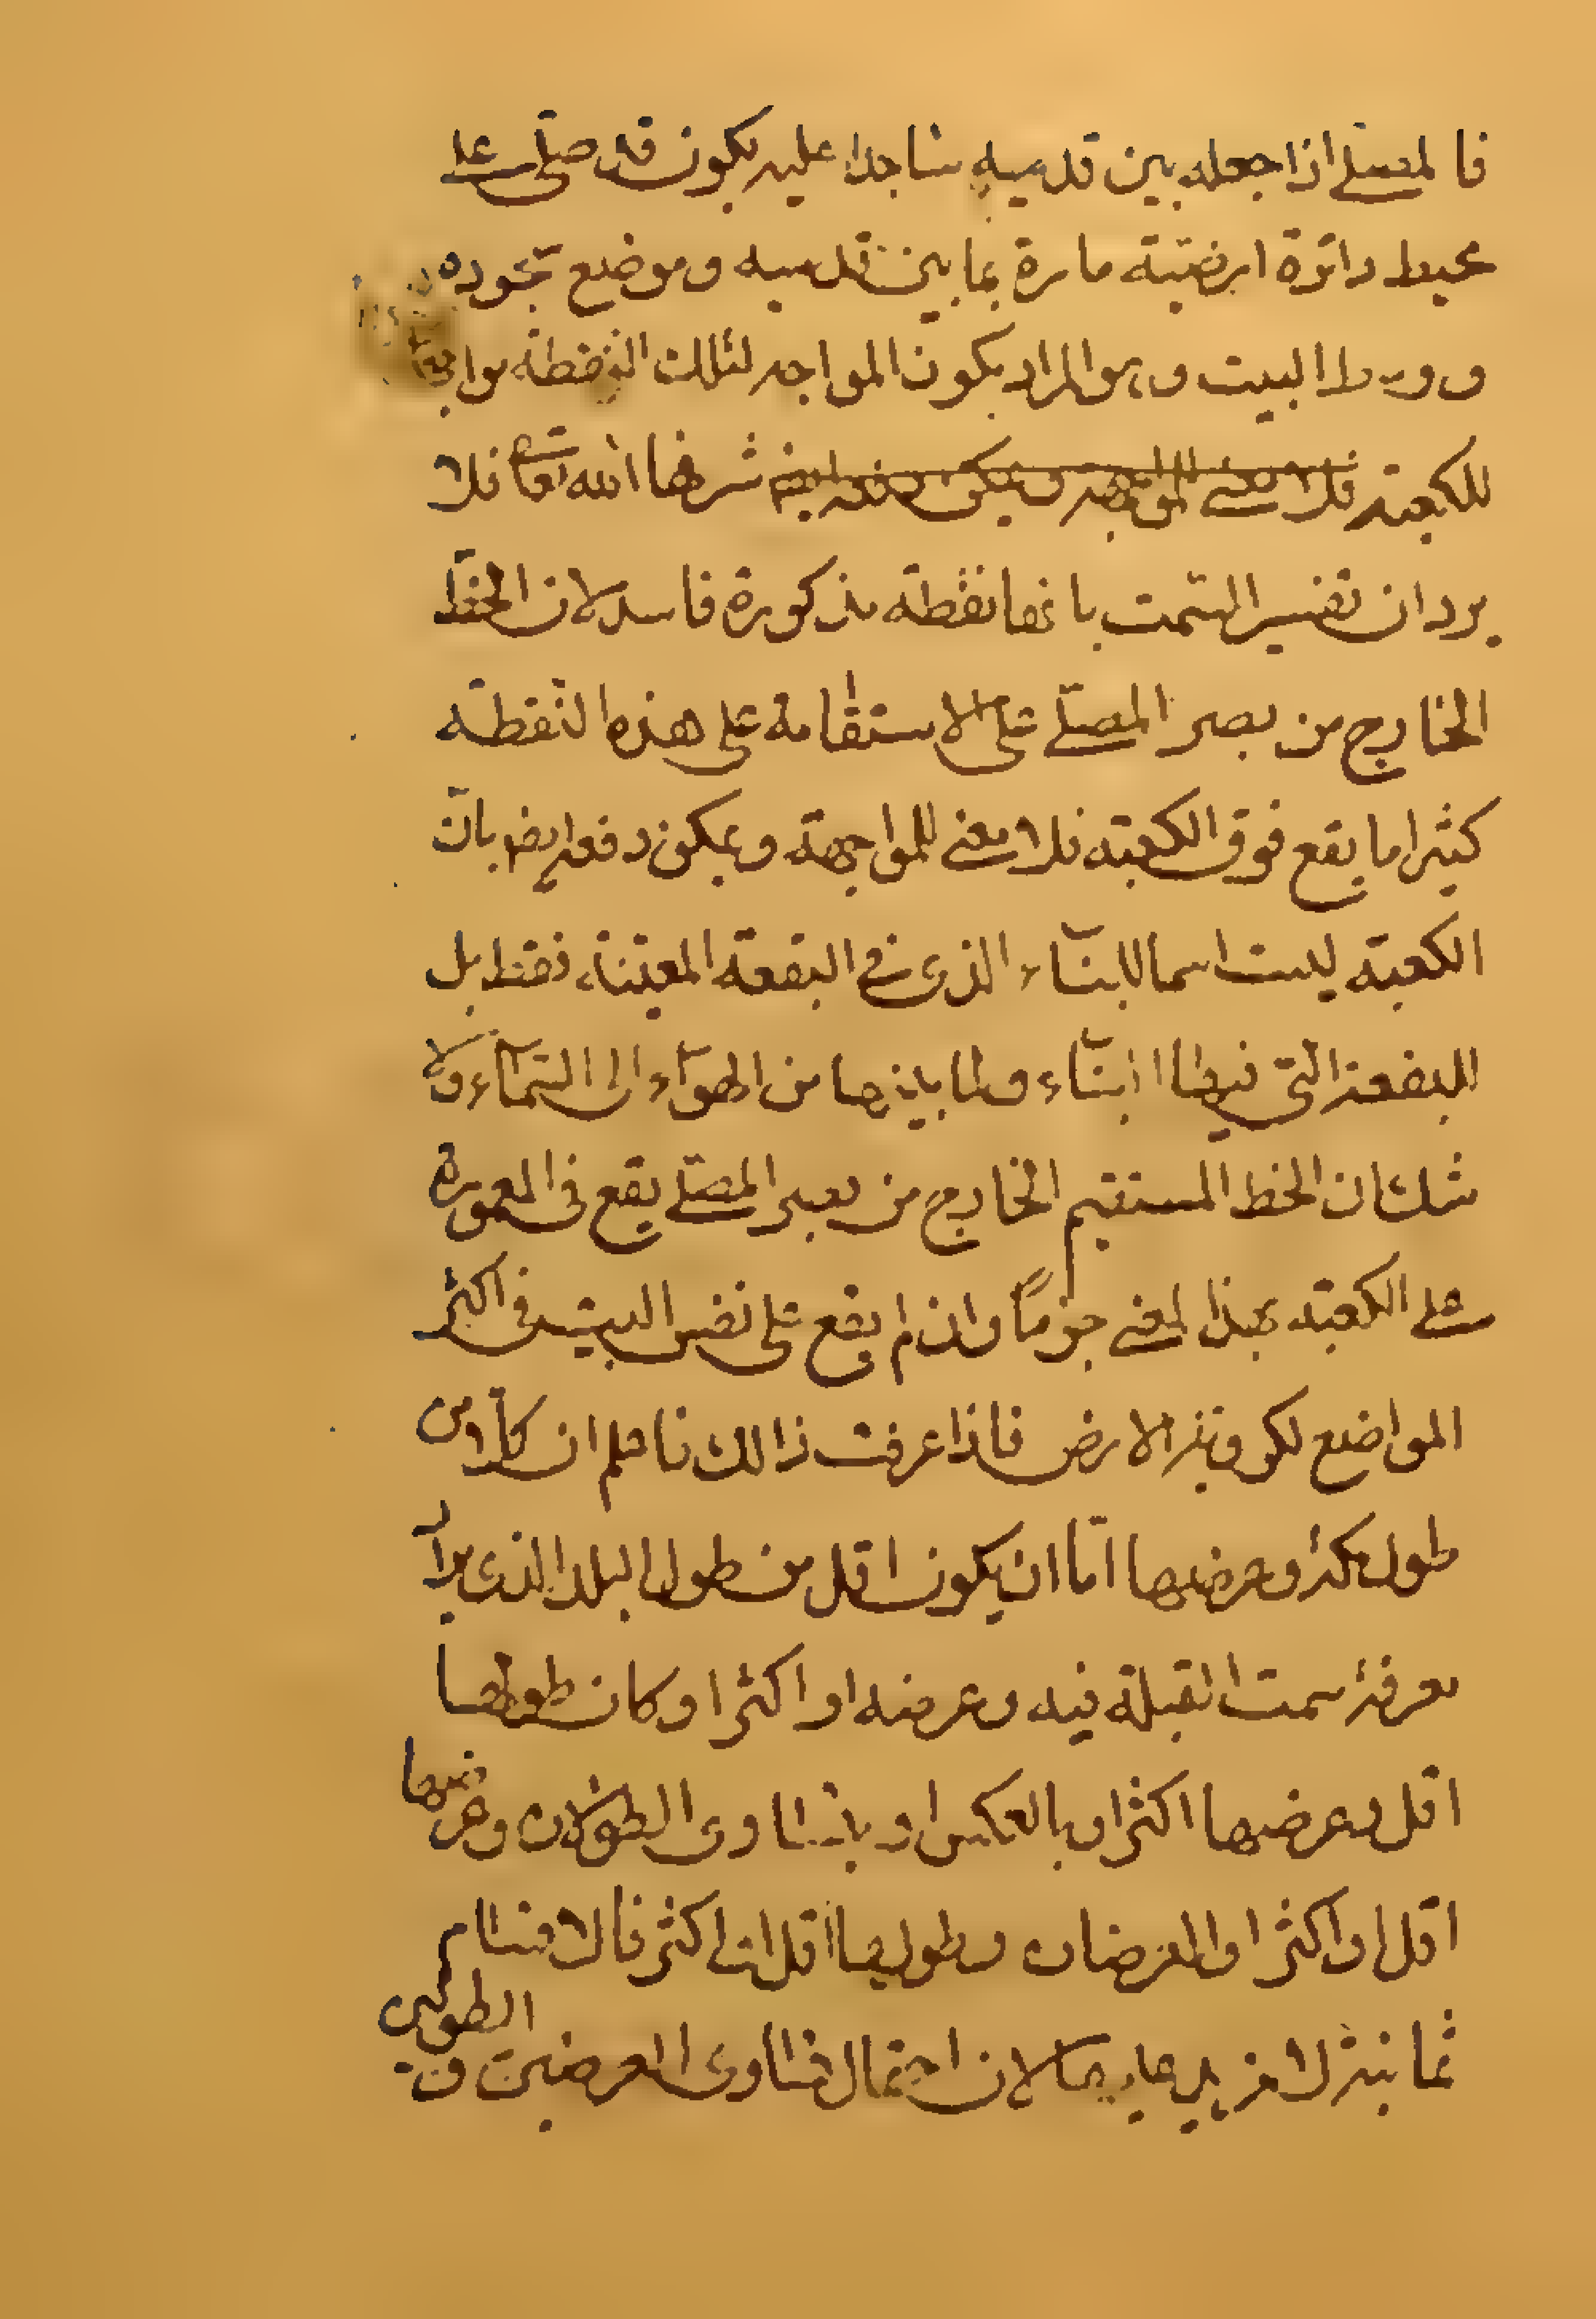 فالمصلي اذا جعله بين قدميه ساجدا عليه يكون قد صلى على
محيط دائرة ارضية مارة بما بين قدميه وموضع سجوده
ووسط البيت وهو المراد بكون المواجه لتلك النقطة مواجها
للكعبة فلا معنى للمواجهة ويمكن دفعه ايضا شرفها الله تعا فلا
يرد ان تفسير السمت بانها نقطة مذكورة فاسد لان الخط
الخارج من بصر المصلي على الاستقامة على هذه النقطة
كثيرا ما يقع فوق الكعبة فلا معنى للمواجهة ويمكن دفعه ايضا بان
الكعبة ليست اسما للبناء الذي في البقعة المعينة فقط بل
للبقعة التي فيها البناء ولما يليها من الهواء الى السماء ولا
شك ان الخط المستقيم الخارج من بصر المصلي يقع في المعمورة
على الكعبة بهذا المعنى جزما وان لم يقع على نفس البيت في اكثر
المواضع لكروية الارض فاذا عرفت ذالك فاعلم ان كلا من
طول مكة وعرضها اما ان يكون اقل من طول البلد الذي يراد
معرفة سمت القبلة فيه وعرضه او اكثر او كان طولها
اقل وعرضها اكثر او بالعكس او يتساوى الطولان وعرضها
اقل او اكثر او العرضان وطولها اقل او اكثر فالاقسام
ثمانية لا مزيد عليها لان احتمال تساوى العرضين و الطولين